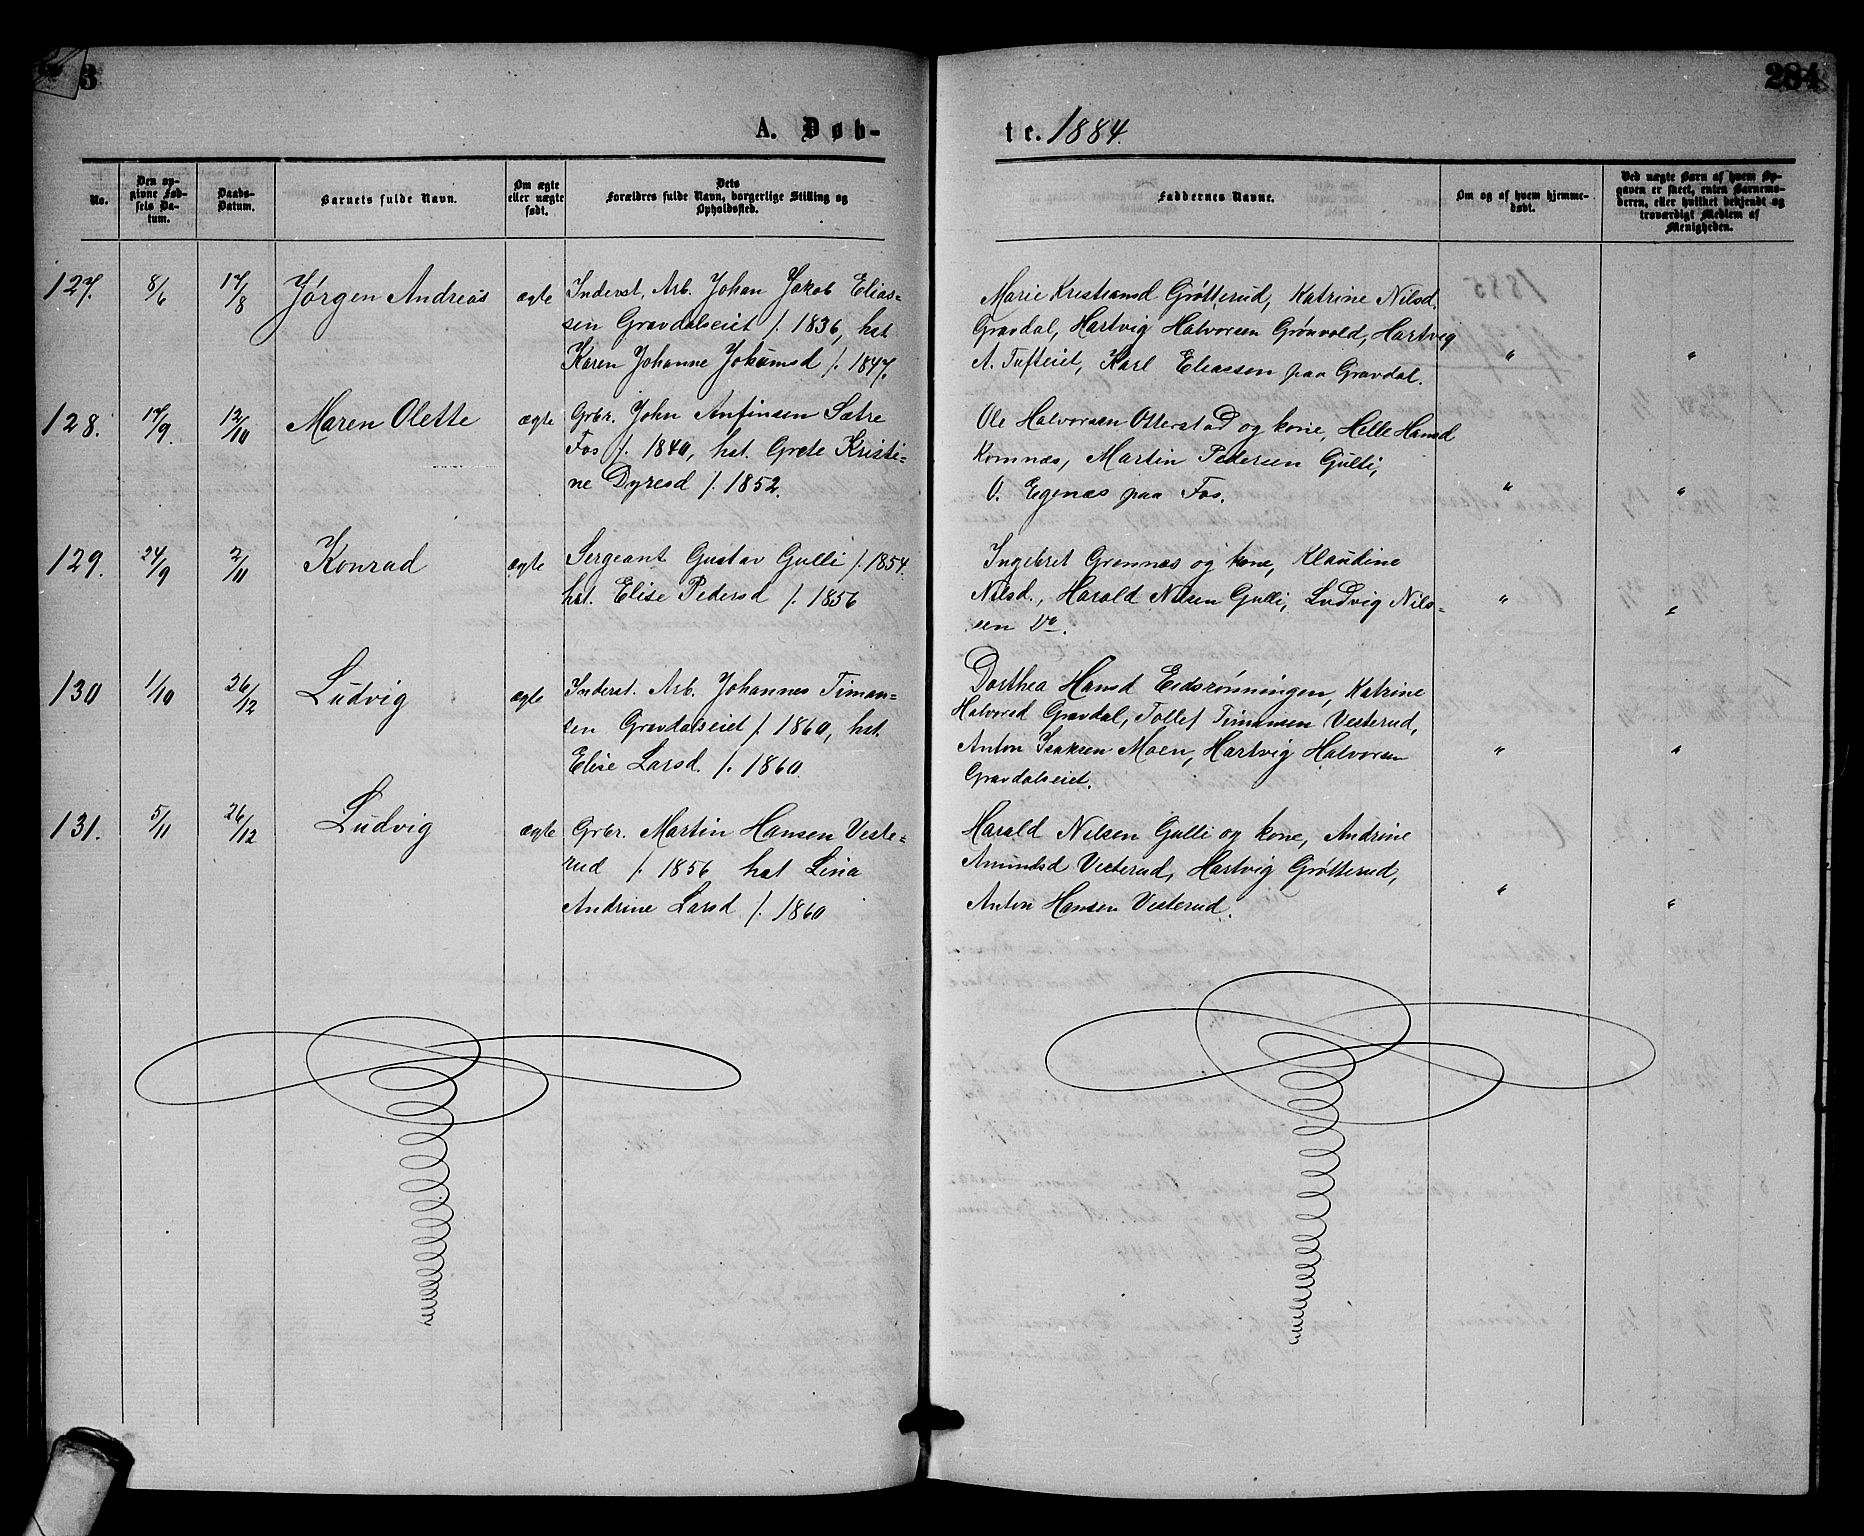 3
284
A. Døb-
te. 1884.
No.
Den op-
givne Fød-
sels Da-
tum.
Daabs-
Datum.
Barnets fulde Navn.
Om ægte
eller uægte
født.
Dets
Forældres fulde Navn, borgerlige Stilling og
Opholdssted.
Faddernes Navne.
Om og af hvem hjemme-
døbt.
Ved uægte Børn af hvem Op-
gaven er skeet, enten Barnemo-
deren, eller hvilket bekjendt og
troværdigt Medlem af
Menigheden.
127. 8/6 17/8 Jørgen Andreas ægte
Inderst, Arb. Johan Jakob Elias-
sen Gravdalseiet f. 1836, hst.
Karen Johanne Jokumsd f. 1847.
Marie Kristiansd Grøtterud, Katrine Nilsd.
Gravdal, Hartvig Halvorsen Grønvold, Hartvig
A. Tufteiet, Karl Eliassen paa Gravdal. " "
128. 17/9. 12/10 Maren Olette ægte
Grbr. John Anfinsen Sætre
Fos f. 1840, hst. Grete Kristi-
ne Dyresd f. 1852.
Ole Halvorsen Otterstad og kone, Helle Hansd
Komnæs, Martin Pedersen Gulli,
O. Egenæs paa Fos. " "
129. 24/9 2/11 Konrad ægte
Sergeant Gustav Gulli f. 1854.
hst. Elise Pedersd f. 1856
Ingebret Grennes og kone, Klaudine
Nilsd., Harald Nilsen Gulli, Ludvig Nils-
sen Do. " "
130 1/10 26/12 Ludvig ægte
Inderst. Arb. Johannes Timan-
sen Gravdalseiet f. 1860, hst.
Elise Larsd. f. 1860.
Dorthea Hansd Eidsrønningen, Katrine
Halvorsd Gravdal, Tollef Timansen Vesterud,
Anton Isaksen Moen, Hartvig Halvorsen
Gravdalseiet. " "
131. 5/11 26/12 Ludvig ægte
Grbr. Martin Hansen Veste-
rud f. 1856 hst Lina
Andrine Larsd f. 1860
Harald Nilsen Gulli og kone, Andrine
Amundsd Vesterud, Hartvig Grøtterud,
Anton Hansen Vesterud. " "